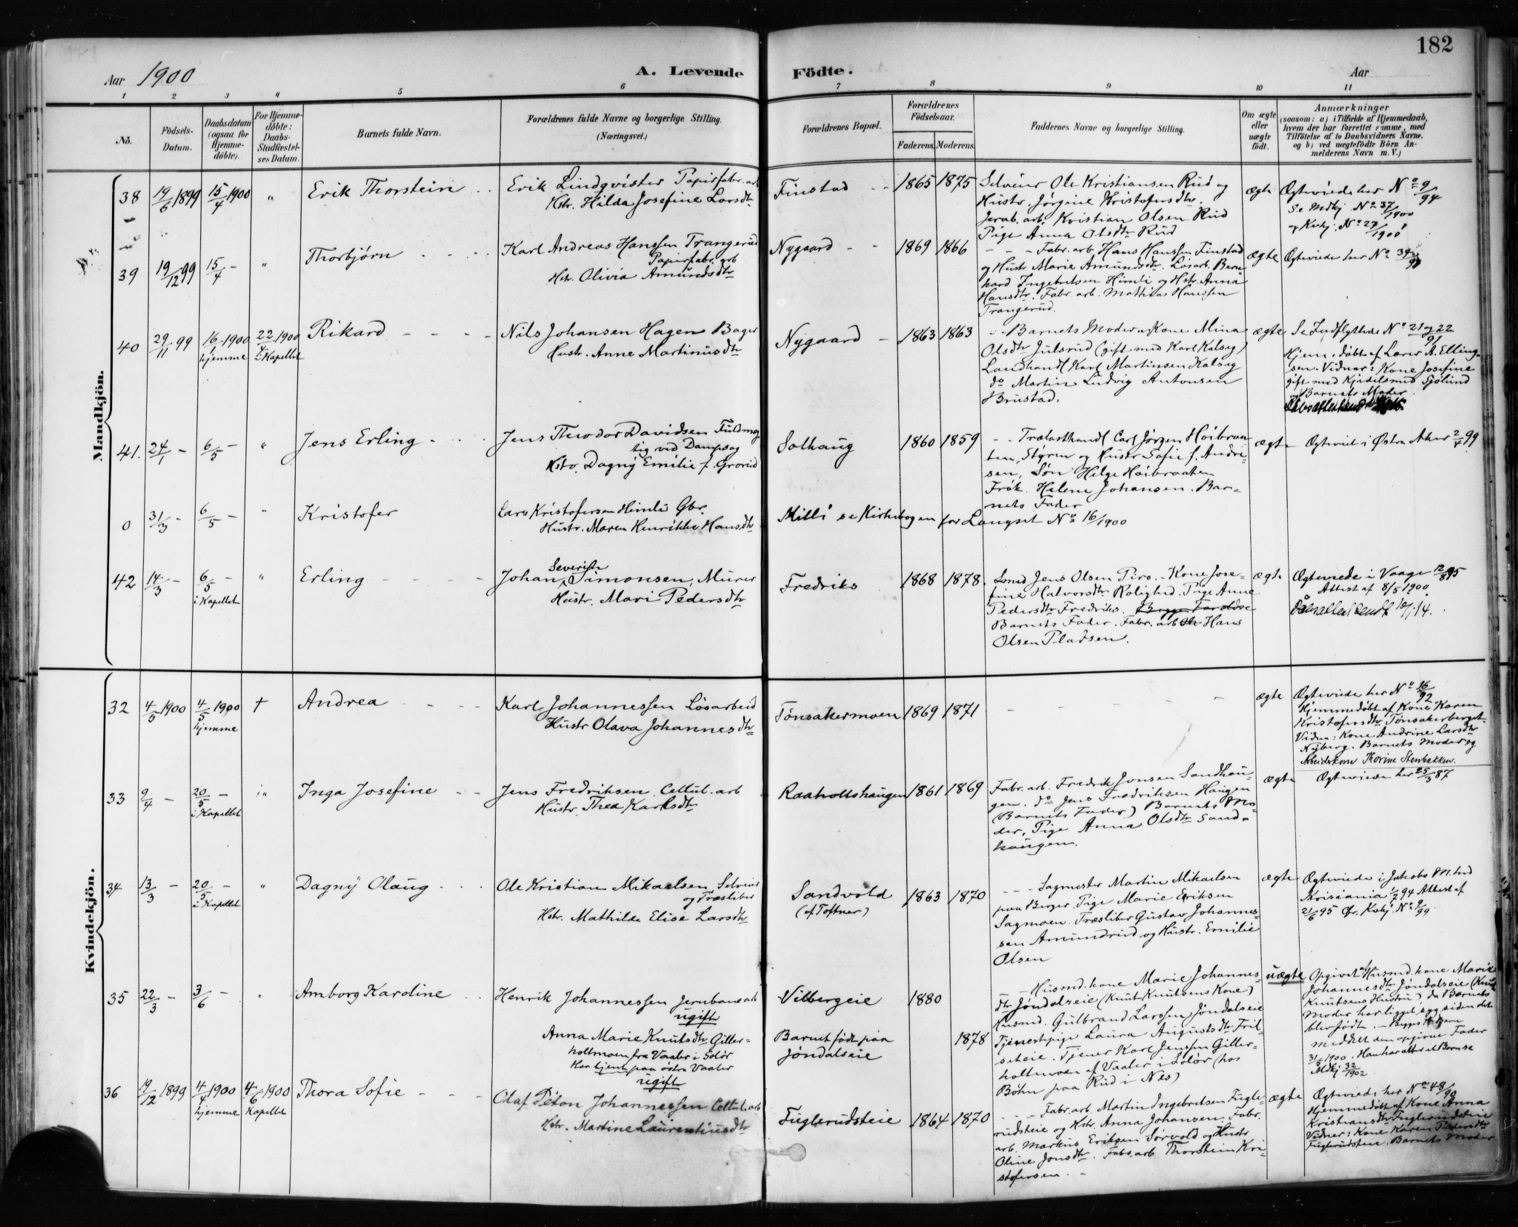 182
Aar 1900
A. Levende Födte.
Aar
1 2 3 4 5 6 7 8 9 10 11
No.
Födsels-Datum.
Daabsdatum (ogsaa for Hjemme-döbte).
For Hjemme-döbte: Daabs-Stadfæstel-ses Datum.
Barnets fulde Navn.
Forældrenes fulde Navne og borgerlige Stilling.
(Næringsvei.)
Forældrenes Bopæl.
Forældrenes Födselsaar.
Faderens. Moderens.
Faddernes Navne og borgerlige Stilling.
Om ægte eller uægte födt.
Anmærkninger
(saasom: a) i Tilfælde af Hjemmedaab, hvem der har forrettet samme, med Tilföielse af to Daabsvidners Navne, og b) ved uægtefödte Börn An-melderens Navn m. V.)
Mandkjön.
38 19/6 1899 15/4 1900 " Erik Thorstein
Erik Lindqvister Papirfabr. arb
Hstr. Hilda Josefine Larsdtr
Finstad 1865 1875
Selveier Ole Kristiansen Rud og
Hustr. Jørgine Kristofersdtr.
Jernb. arb. Kristian Olsen Rud
Pige Anna Olsdtr Rud
ægte Ægteviede her No 9/94
39 19/12 99 15/4 - " Thorbjørn
Karl Andreas Hanssen Trangerud
Papirfabr. arb
Hstr. Olivia Amundsdtr
Nygaard 1869 1866
Fabr. arb Hans Hanssen Finstad
og Hustr Marie Amundsdtr. Løsarb. Bern-
hard Ingebritsen Himli og Hstr. Anna
Hansdtr. Fabr. arb. Mathias Hanssen
Trangerud.
ægte Ægteviede her No
40 29/11 99 16/ 1900 hjemme 22/4 1900 i Kapellet Rikard
Nils Johansen Hagen Bager
Hustr. Anne Martinusdtr
Nygaard 1863 1863
Barnets Moder og Kone Mina
Olsdtr Julsrud (gift med Karl Kalsig)
Landhandl Karl Martinsen Kalsig
do Martin Ludvig Antonsen
Brustad.
ægte Se Indflyttede No 21 og 22
Hjem. døbt af Lærer A. Elling-
sen. Vidner: Kone Josefine
gift med Kjedelsmed Sjølund
og Barnets Moder
41. 24/1 - 6/5 - " Jens Erling
Jens Theodor Davidsen Fuldmæg
tig ved Dampsag
Hstr. Dagny Emilie f. Grorud
Solhaug 1860 1859
Trælasthandl Carl Jørgen Høibraa-
ten, Styren og Hustr Sofie f. Andre-
sen, Søn Helge Høibraaten
Frøk. Helene Johansen. Bar-
nets Fader
ægte Ægteviet i Østre Aker 99
0 31/3 - 6/5 - " Kristofer
Lars Kristofersen Himli Gbr.
Hustr. Maren Henrikke Hansdtr
Milli se Kirkebogen for Langset No 16/1900
42 14/3 - 6/5 - i Kapellet " Erling
Johan Severin Simonsen, Murer
Hustr. Mari Pedersdtr
Fredriks 1868 1878
Smed Jens Olsen Piro. Kone Jose-
fine Halvorsdtr Rolighed. Pige Anne
Pedersdtr Fredriks.
Barnets Fader. Fabr. arb Hans
Olsen Pladsen.
ægte Ægteviede i Vaage 95
Attest af 8/5 1900
Kvindekjön.
32 4/5 1900 4/5 1900 hjemme † Andrea
Karl Johannessen Løsarbeid
Hustr Olava Johannesdtr
Tønsakermoen 1869 1871
ægte Ægteviede her No 16/92
Hjemmedøbt af Kone Karen
Kristofersdtr Tønsakerberget
Vidner: Kone Andrine Larsdtr
Nyberg. Barnets Moder og
Arbeiderkone Karine Stenbakken.
33 9/4 - 20/5 - i Kapellet " Inga Josefine
Jens Fredriksen Cellul. arb
Hustr. Thea Karlsdtr
Raaholtshaugen 1861 1869
Fabr. arb. Fredrik Jonsen Sandhau-
gen. do Jens Fredriksen Haugen
(Barnets Fader) Barnets Mo-
der, Pige Anna Olsdtr Sand-
haugen.
ægte Ægteviede her 25/3 87
34 13/3 - 20/5 - i Kapellet " Dagny Olaug
Ole Kristian Mikaelsen Selveier
og Træsliber
Hstr. Mathilde Elise Larsdtr
Sandvold
(af Toftner) 1863 1870
Sagmester Martin Mikaelsen
paa Berger. Pige Marie Eriksen
Sagmoen. Træsliber Gustav Johannes-
sen Amundrud og Hustr. Emilie
Olsen
ægte Ægteviede i Jakobs Mhed
Kristiania 94 Attest af
2/6 95
35 22/3 - 3/6 - " Amborg Karoline
Henrik Johannessen Jernbanearb
ugift
Anna Marie Knutsdtr Gitter-
holtmoen fra Vaaler i Solør
Har tjent paa østre Vaaler
ugift
Vilbergeie 1880
Barnet født paa
Jøndalseie 1878
Husmd. kone Marie Johannes
dtr Jøndalseie (Knut Knutsens Kone)
Husmd. Gulbrand Larssen Jøndalseie
Tjenestepige Laura Augustsdtr
Tjener Karl Jensen Gitter-
holtmoen af Vaaler i Solør (hos
Bøhn paa Rud i Næs)
uægte Opgivet af Husmd. kone Marie
Johannesdtr Jøndalseie (Knut
Knutsens Hustru), da Barnets
Moder har ligget syg siden det
blev født.
meddelt den opgivne Fader
36 19/12 1899 4/ 1900 hjemme 4/6 1900 Kapellet Thora Sofie
Olaf Peton Johannessen Cellul. arb
Hstr. Martine Laurentiusdtr
Fuglerudseie 1864 1870
Fabr. arb Martin Ingebretsen Fugle-
rudseie og Hstr. Anna Johansen. Fabr.
arb. Markus Eriksen Sørvold og Hustr
Oline Jonsdtr. Fabr. arb Thorstein Kri-
stofersen
ægte Ægteviede her No 48/90
Hjemmedøbt af Kone Anna
Kristiansdtr Fuglerudseie
Vidner: Kone Karen Pedersdtr
Fuglerudseie, Barnets Moder